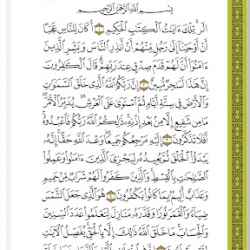 بِسْمِ ٱللَّهِ ٱلرَّحْمَٰنِ ٱلرَّحِيمِ
الٓر تِلْكَ ءَايَٰتُ ٱلْكِتَٰبِ ٱلْحَكِيمِ ۝ أَكَانَ لِلنَّاسِ عَجَبًا
أَنْ أَوْحَيْنَآ إِلَىٰ رَجُلٍ مِّنْهُمْ أَنْ أَنذِرِ ٱلنَّاسَ وَبَشِّرِ ٱلَّذِينَ
ءَامَنُوٓا۟ أَنَّ لَهُمْ قَدَمَ صِدْقٍ عِندَ رَبِّهِمْ قَالَ ٱلْكَٰفِرُونَ
إِنَّ هَٰذَا لَسَٰحِرٌ مُّبِينٌ ۝ إِنَّ رَبَّكُمُ ٱللَّهُ ٱلَّذِى خَلَقَ ٱلسَّمَٰوَٰتِ
وَٱلْأَرْضَ فِى سِتَّةِ أَيَّامٍ ثُمَّ ٱسْتَوَىٰ عَلَى ٱلْعَرْشِ يُدَبِّرُ ٱلْأَمْرَ
مَا مِن شَفِيعٍ إِلَّا مِنۢ بَعْدِ إِذْنِهِۦ ذَٰلِكُمُ ٱللَّهُ رَبُّكُمْ فَٱعْبُدُوهُ
أَفَلَا تَذَكَّرُونَ ۝ إِلَيْهِ مَرْجِعُكُمْ جَمِيعًا وَعْدَ ٱللَّهِ حَقًّا إِنَّهُۥ
يَبْدَؤُا۟ ٱلْخَلْقَ ثُمَّ يُعِيدُهُۥ لِيَجْزِىَ ٱلَّذِينَ ءَامَنُوا۟ وَعَمِلُوا۟
ٱلصَّٰلِحَٰتِ بِٱلْقِسْطِ وَٱلَّذِينَ كَفَرُوا۟ لَهُمْ شَرَابٌ مِّنْ حَمِيمٍ
وَعَذَابٌ أَلِيمٌۢ بِمَا كَانُوا۟ يَكْفُرُونَ ۝ هُوَ ٱلَّذِى جَعَلَ ٱلشَّمْسَ
ضِيَآءً وَٱلْقَمَرَ نُورًا وَقَدَّرَهُۥ مَنَازِلَ لِتَعْلَمُوا۟ عَدَدَ ٱلسِّنِينَ
وَٱلْحِسَابَ مَا خَلَقَ ٱللَّهُ ذَٰلِكَ إِلَّا بِٱلْحَقِّ يُفَصِّلُ ٱلْءَايَٰتِ